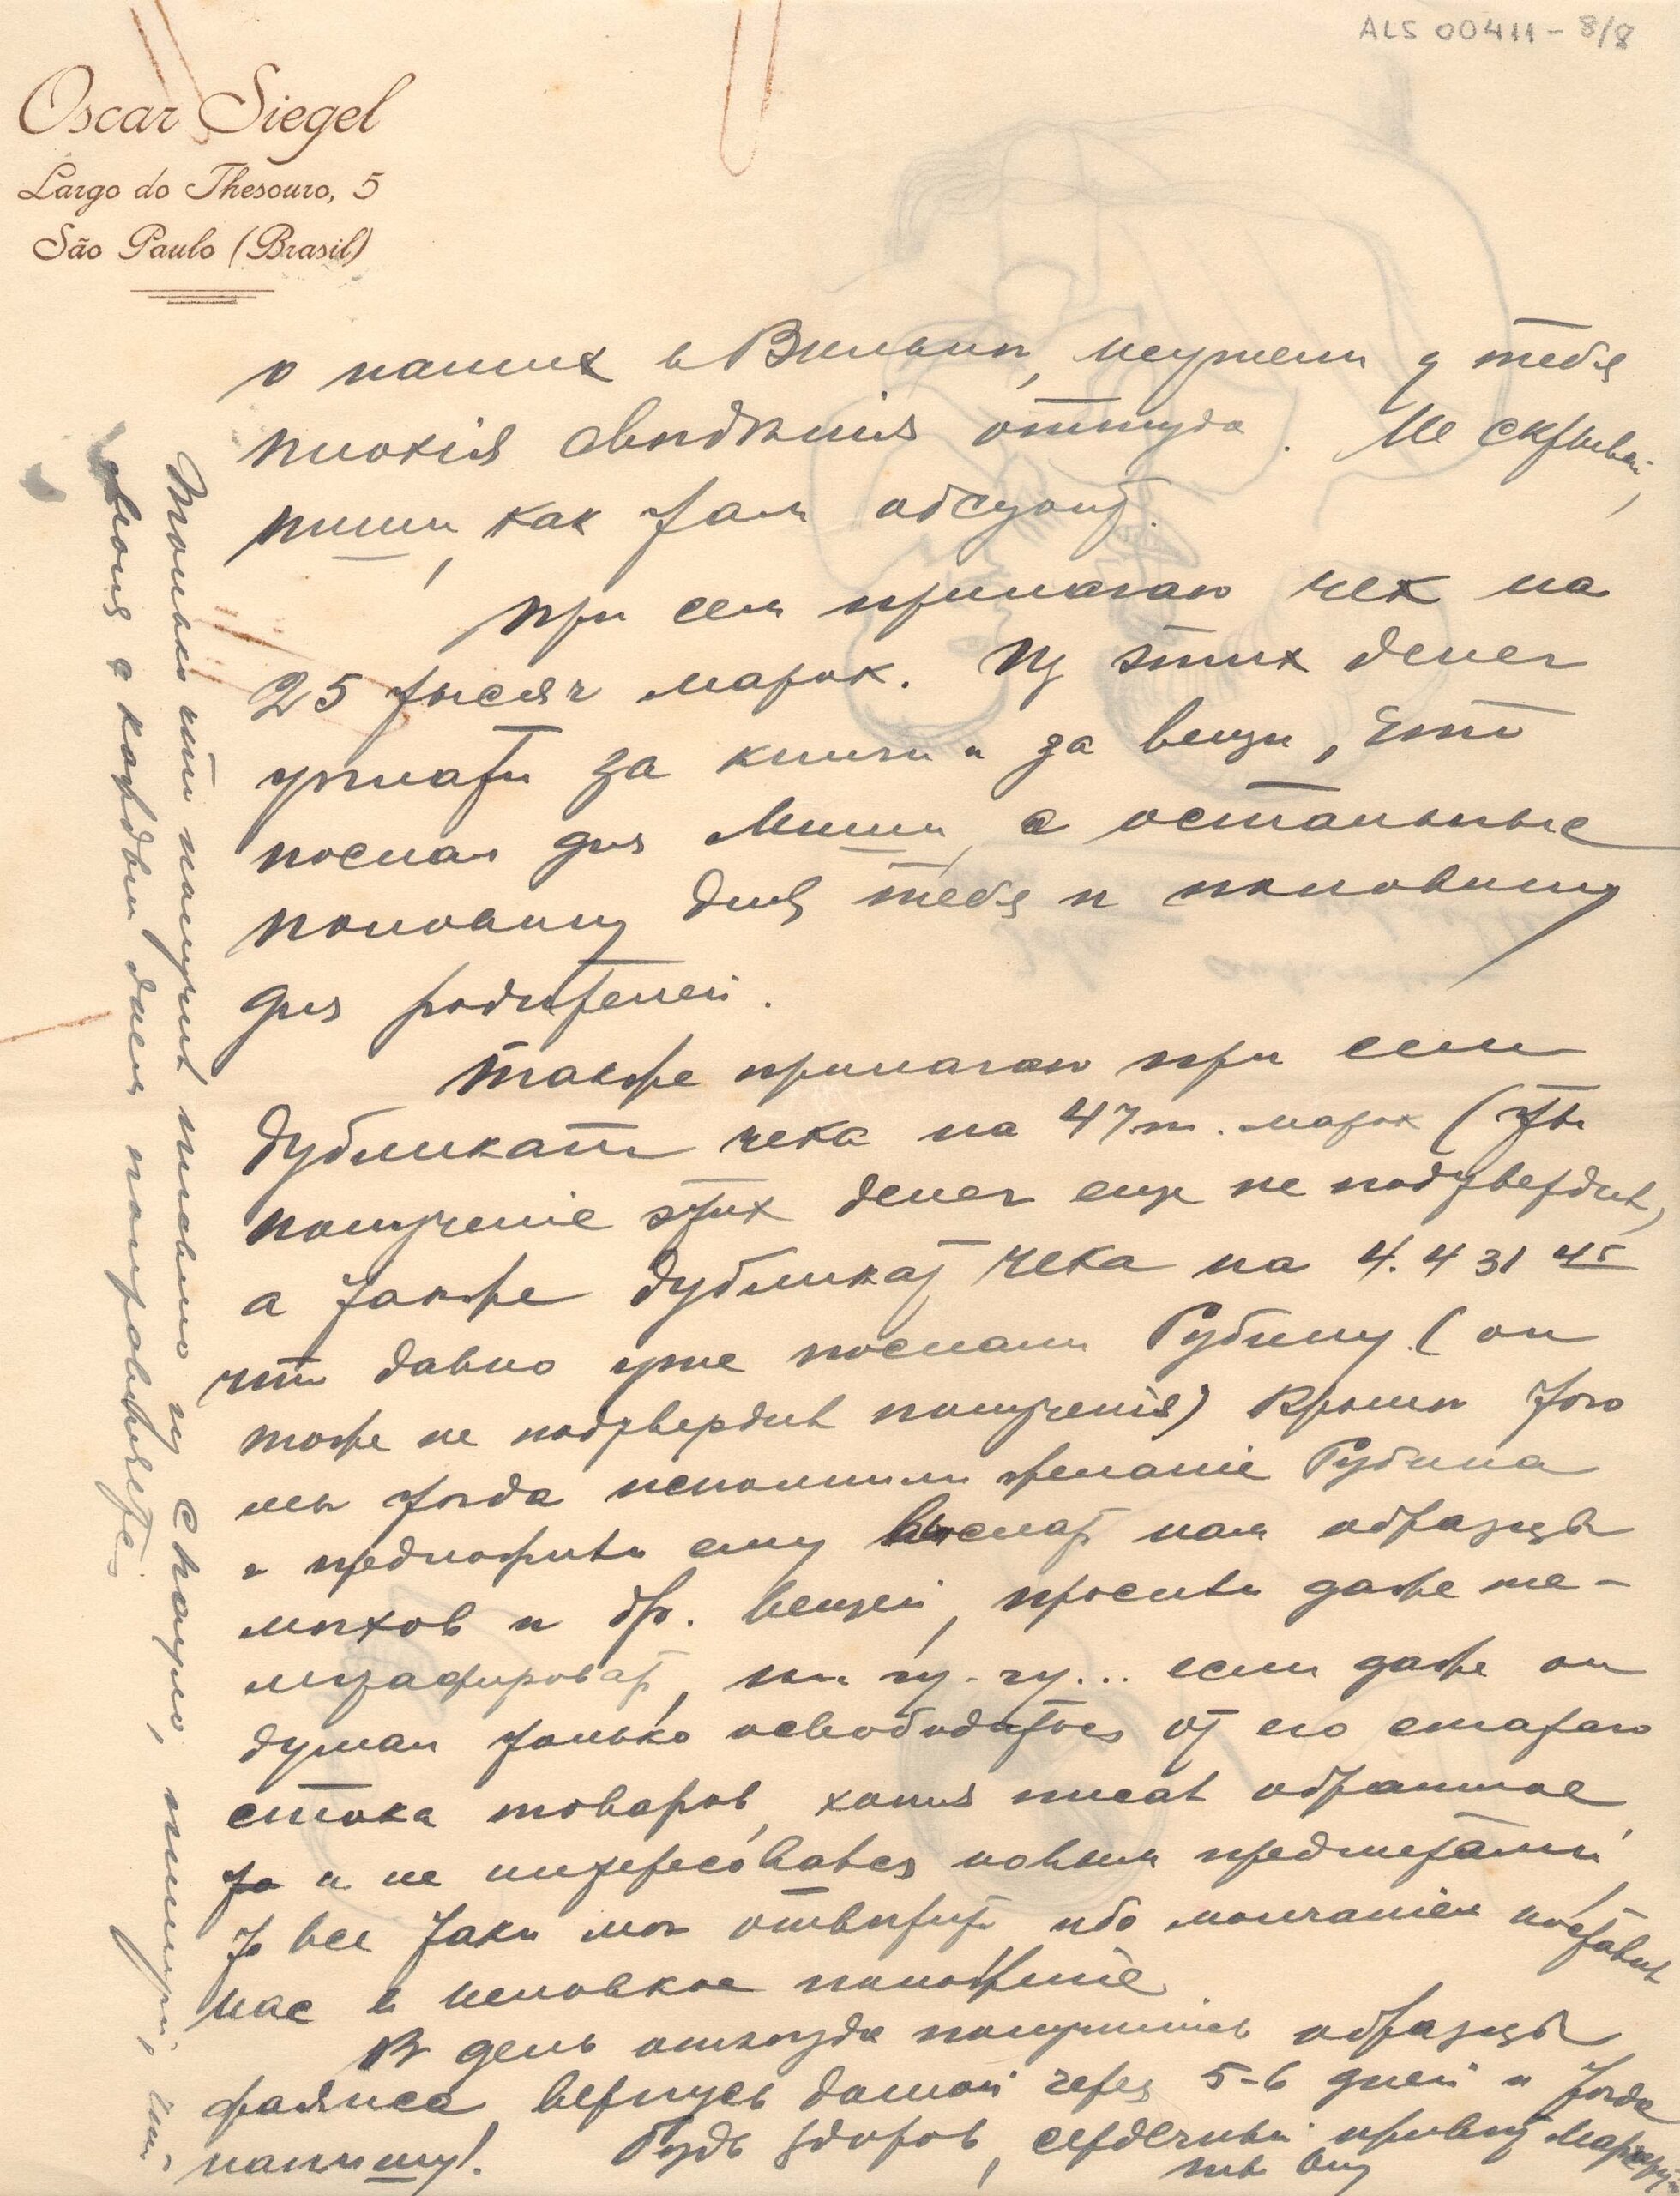 ALS 00411 - 8/8
Oscar Siegel
Largo do Thesouro, 5
São Paulo (Brasil)
о наших в Вильне, неужели у тебя
плохiя свѣдѣнiя оттуда. Не скрывай,
пиши, как там обстоит.
При сем прилагаю чек на
25 тысяч марок. Из этих денег
уплати за книги и за вещи, что
послал для Миши, а остальные
половину для тебя и половину
для родителей.
Также прилагаю при сем
дубликат чека на 47 т. марок (ты
полученiе этих денег еще не подтвердил,
а также дубликат чека на 4.431 45
что давно уже послали Рубину (он
тоже не подтвердил полученiя) Кромѣ того
мы тогда исполнили желанiе Рубина
и предложили ему выслать нам образцы
мѣхов и др. вещей, просили даже те-
леграфировать, ни гу-гу... если даже он
думал только освободиться от его стараго
стока товаров, хотя писал обратное,
то и не интересовался новыми предметами,
то все таки мог отвѣтить ибо молчанiем поставил
нас в неловкое положенiе.
В день отъѣзда получились образцы
фаянса, вернусь домой через 5-6 дней и тогда
напишу. Будь здоров, сердечный привѣт
Только что получил письмо из С. Пауло, пишут, что
Соня с каждым днем поправляется